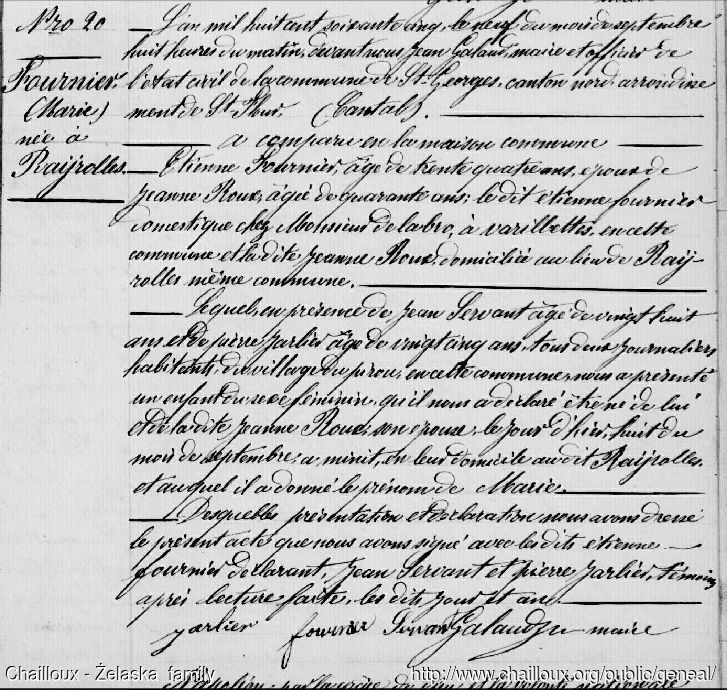 Nro 20
Fournier,
(Marie)
née à
Rayrolles.
L'an mil huit cent soixante cinq, le neuf du mois de septembre
huit heures du matin, devant nous Jean Galaud, maire et officier de
l'état civil de la commune de St Georges, canton nord arrondisse
ment de St Flour, (Cantal).
a comparu en la maison commune
Etienne Fournier, âgé de trente quatre ans, époux de
Jeanne Roux, âgée de quarante ans; le dit étienne fournier
domestique chez Monsieur de labro, à varillettes, en cette
commune et la dite Jeanne Roux, domiciliée au lieu de Ray-
rolles même commune.
Lequel, en présence de Jean Servant âgé de vingt huit
ans et de pierre Jarlier âgé de vingt cinq ans, tous deux journaliers
habitants du village du pirou, en cette commune, nous a présenté
un enfant du sexe féminin, qu'il nous a déclaré être né de lui
et de la dite Jeanne Roux, son épouse, le jour d'hier, huit du
mois de septembre, a minuit, en leur domicile au dit Rayrolles.
et auquel il a donné le prénom de Marie.
Desquelles présentation et déclaration nous avons dressé
le présent acte que nous avons signé avec les dits étienne
fournier déclarant, Jean Servant et pierre Jarlier, témoins
après lecture faite, les dits jour et an.
jarlier fournier Servan Galaud maire
Chailloux - Želaska family http://www.chailloux.org/public/geneal/